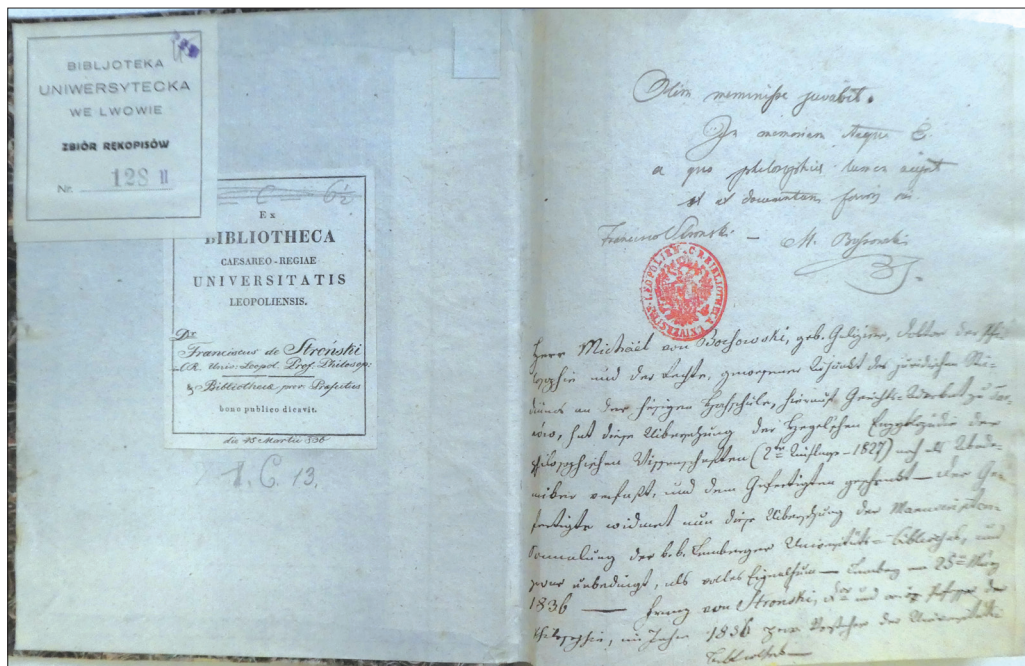 BIBLJOTEKA
UNIWERSYTECKA
WE LWOWIE
ZBIÓR RĘKOPISÓW
Nr. 128 II
C 6½
Ex
BIBLIOTHECA
CAESAREO-REGIAE
UNIVERSITATIS
LEOPOLIENSIS.
Dr
Franciscus de Stroński
CR. Univ: Leopol. Prof. Philosop:
Bibliothecæ prov: Præfectus
bono publico dicavit.
die 25 Martii 836
I. C. 13.
Olim meminisse juvabit.
In memoriam
a quo philosophiae
et
Francisco Stroński — M.
Herr Michael von Bochowski, geb. Galizier, Doktor der Philo-
sophie und der Rechte, gewesener Adjunkt des juridischen Stu-
diums an der hiesigen Hochschule, hierauf Gerichts-Advokat zu Tar-
nów, hat diese Uibersetzung der Hegelschen Enzyklopädie der
philosophischen Wissenschaften (2te Auflage – 1827) noch als
verfaßt, und dem Gefertigten geschenkt — der Ge-
fertigte widmet nun diese Uibersetzung der Manuscripten
Sammlung der k.k. Lemberger Universitäts-Bibliothek, und
zwar unbedingt, als volles Eigenthum — Lemberg am 25ten März
1836 — Franz von Stroński, Dr und Professor der
Philosophie, im Jahre 1836 Vorsteher der Universitäts
Bibliothek —